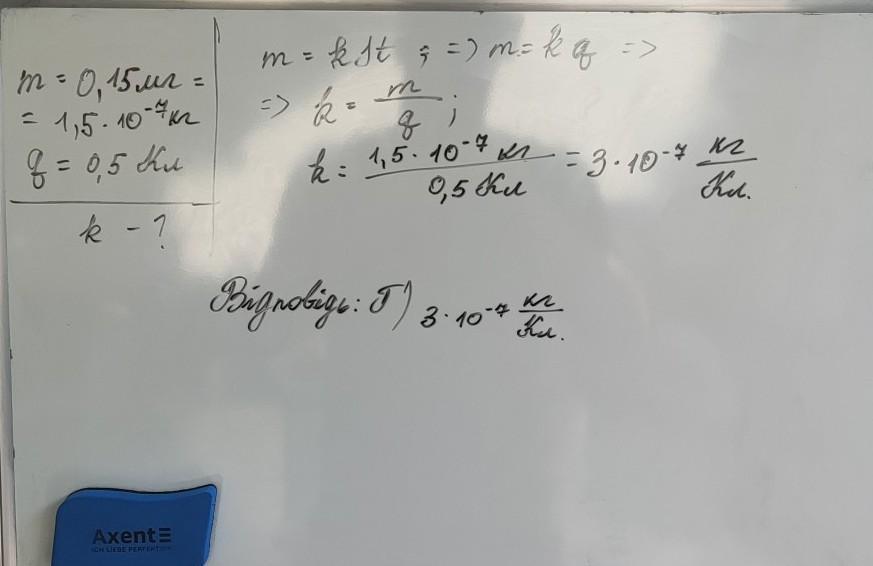 m = 0,15 мг =
= 1,5 · 10⁻⁷ кг
q = 0,5 Кл
k - ?
m = k I t ; => m = k q =>
=> k = m/q ;
k = 1,5 · 10⁻⁷ кг / 0,5 Кл = 3 · 10⁻⁷ кг/Кл.
Відповідь: Г) 3 · 10⁻⁷ кг/Кл.
Axent
ICH LIEBE PERFEKTION